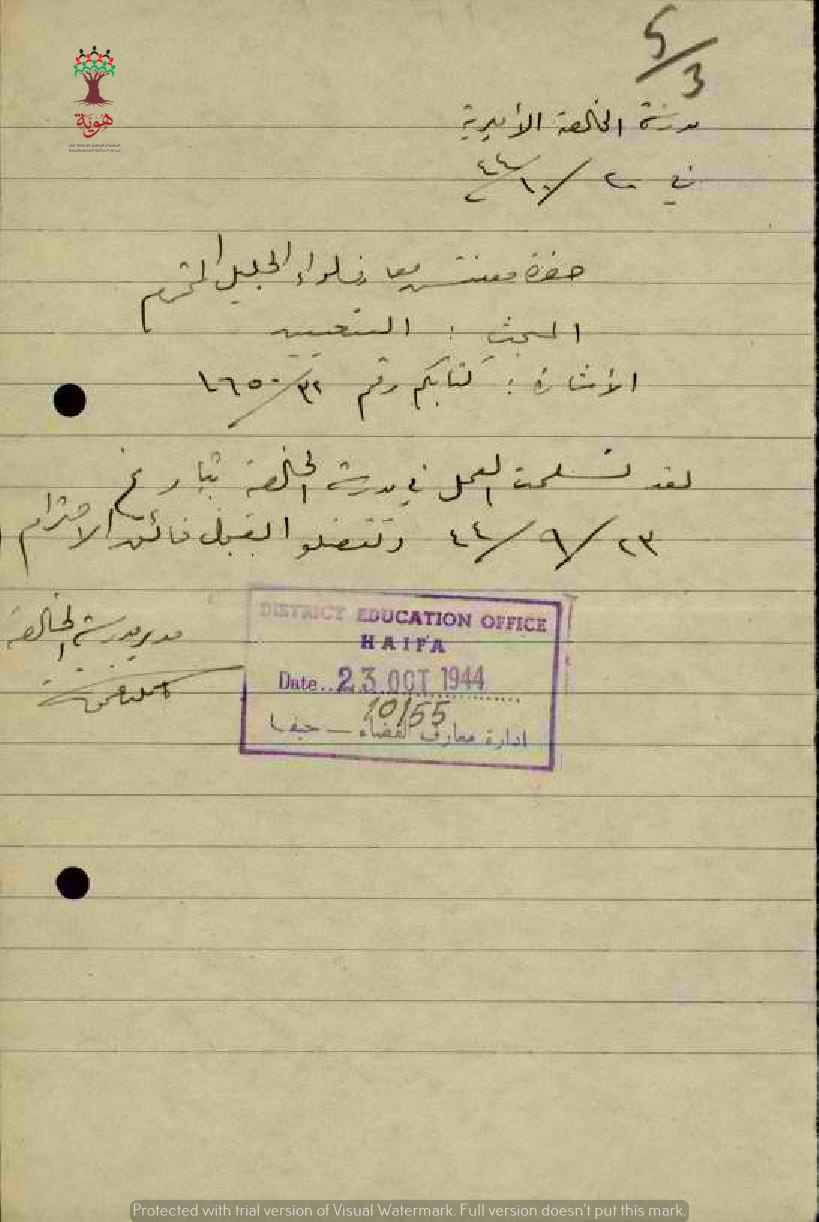 5/3
هوية
مدرسة الخالصة الأميرية
في ٢٠/١٠/٤٤
حضرة مفتش معارف لواء الجليل المحترم
المبحث : التعيين
الأشارة : كتابكم رقم ٣٢/١٦٥٠
لقد تسلمت العمل في مدرسة الخالصة بتاريخ
٢٣/٩/٤٤ وتفضلوا بقبول فائق الاحترام
مدير مدرسة الخالصة
DISTRICT EDUCATION OFFICE
HAIFA
Date.. 23 OCT 1944
10/55
ادارة معارف القضاء — حيفا
Protected with trial version of Visual Watermark. Full version doesn't put this mark.